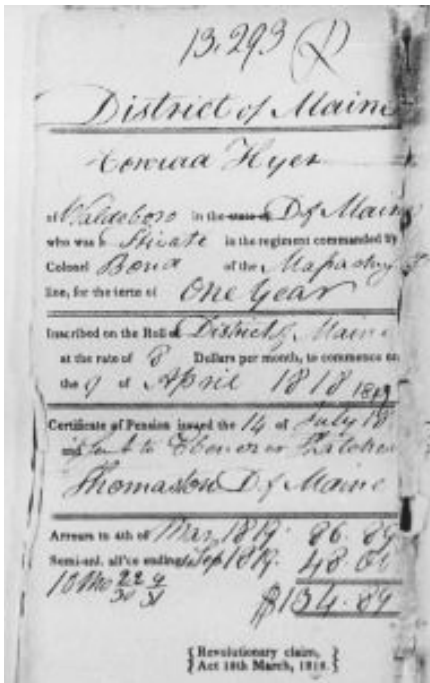 13.293
District of Maine
Conrad Hyer
of Waldoboro in the state of D of Maine
who was a Private in the regiment commanded by
Colonel Bond of the Massachus
line, for the term of One Year
Inscribed on the Roll of District of Maine
at the rate of 8 Dollars per month, to commence on
the 9 of April 1818 1819
Certificate of Pension issued the 14 of July 18
and sent to Ebenezer Thatcher
Thomaston D of Maine
Arrears to 4th of Mar 1819. 86.89
Semi-anl. all'ce ending Sep 1819. 48.00
10 Mo 22/30 9/31 $134.89
{Revolutionary claim,
Act 18th March, 1818.}